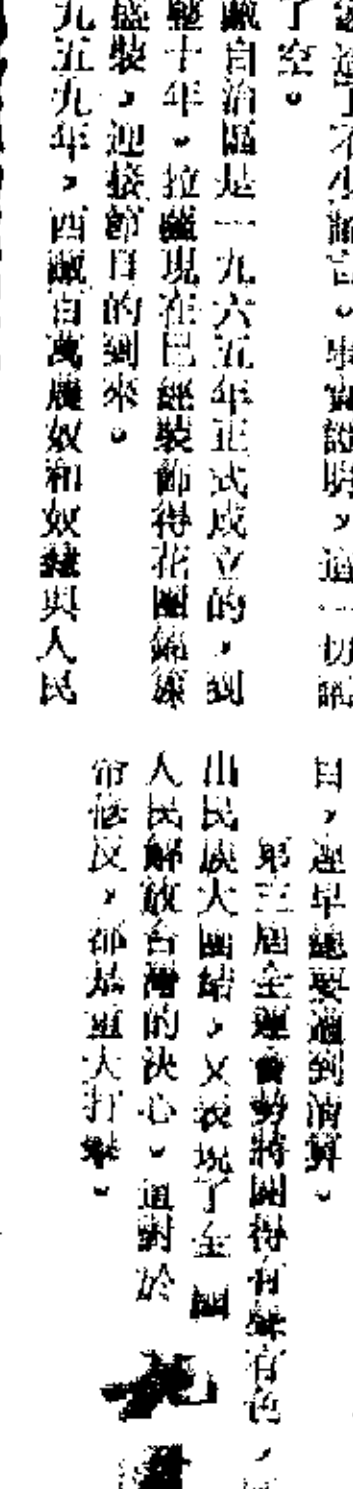 造了不少謠言。事實證明，這一切謠
了空。
藏自治區是一九六五年正式成立的，到
整十年。拉薩現在已經裝飾得花團錦簇
盛裝，迎接節日的到來。
九五九年，西藏百萬農奴和奴隸與人民
日，遲早總要遭到清算。
第三屆全運會勢將開得有聲有色，
出民族大團結，又表現了全國
人民解放台灣的決心。這對於
帝修反，都是重大打擊。